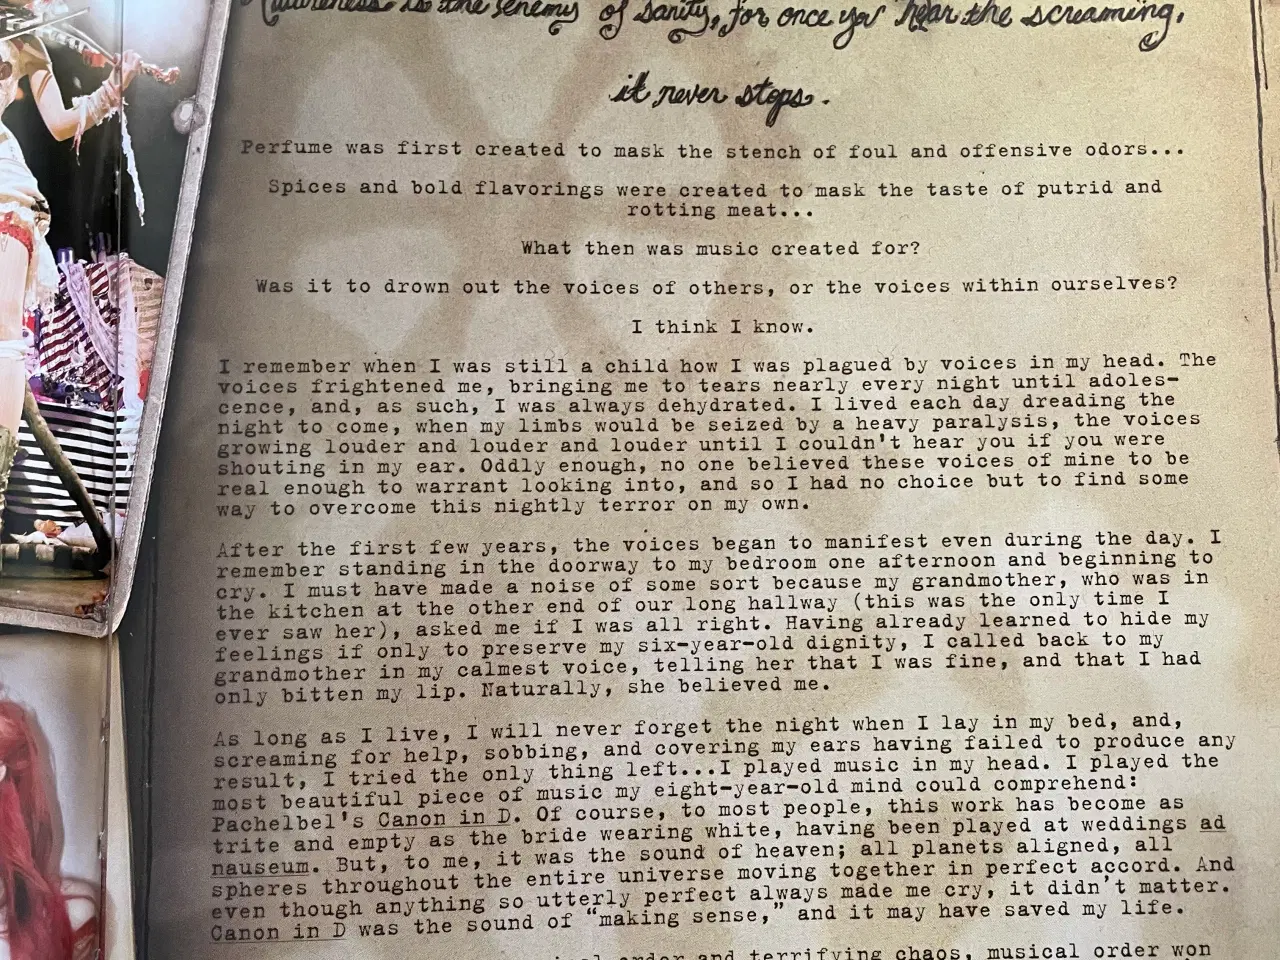 Awareness is the enemy of sanity, for once you hear the screaming,
it never stops.
Perfume was first created to mask the stench of foul and offensive odors...
Spices and bold flavorings were created to mask the taste of putrid and
rotting meat...
What then was music created for?
Was it to drown out the voices of others, or the voices within ourselves?
I think I know.
I remember when I was still a child how I was plagued by voices in my head. The
voices frightened me, bringing me to tears nearly every night until adoles-
cence, and, as such, I was always dehydrated. I lived each day dreading the
night to come, when my limbs would be seized by a heavy paralysis, the voices
growing louder and louder and louder until I couldn't hear you if you were
shouting in my ear. Oddly enough, no one believed these voices of mine to be
real enough to warrant looking into, and so I had no choice but to find some
way to overcome this nightly terror on my own.
After the first few years, the voices began to manifest even during the day. I
remember standing in the doorway to my bedroom one afternoon and beginning to
cry. I must have made a noise of some sort because my grandmother, who was in
the kitchen at the other end of our long hallway (this was the only time I
ever saw her), asked me if I was all right. Having already learned to hide my
feelings if only to preserve my six-year-old dignity, I called back to my
grandmother in my calmest voice, telling her that I was fine, and that I had
only bitten my lip. Naturally, she believed me.
As long as I live, I will never forget the night when I lay in my bed, and,
screaming for help, sobbing, and covering my ears having failed to produce any
result, I tried the only thing left...I played music in my head. I played the
most beautiful piece of music my eight-year-old mind could comprehend:
Pachelbel's Canon in D. Of course, to most people, this work has become as
trite and empty as the bride wearing white, having been played at weddings ad
nauseum. But, to me, it was the sound of heaven; all planets aligned, all
spheres throughout the entire universe moving together in perfect accord. And
even though anything so utterly perfect always made me cry, it didn't matter.
Canon in D was the sound of "making sense," and it may have saved my life.
order and terrifying chaos, musical order won